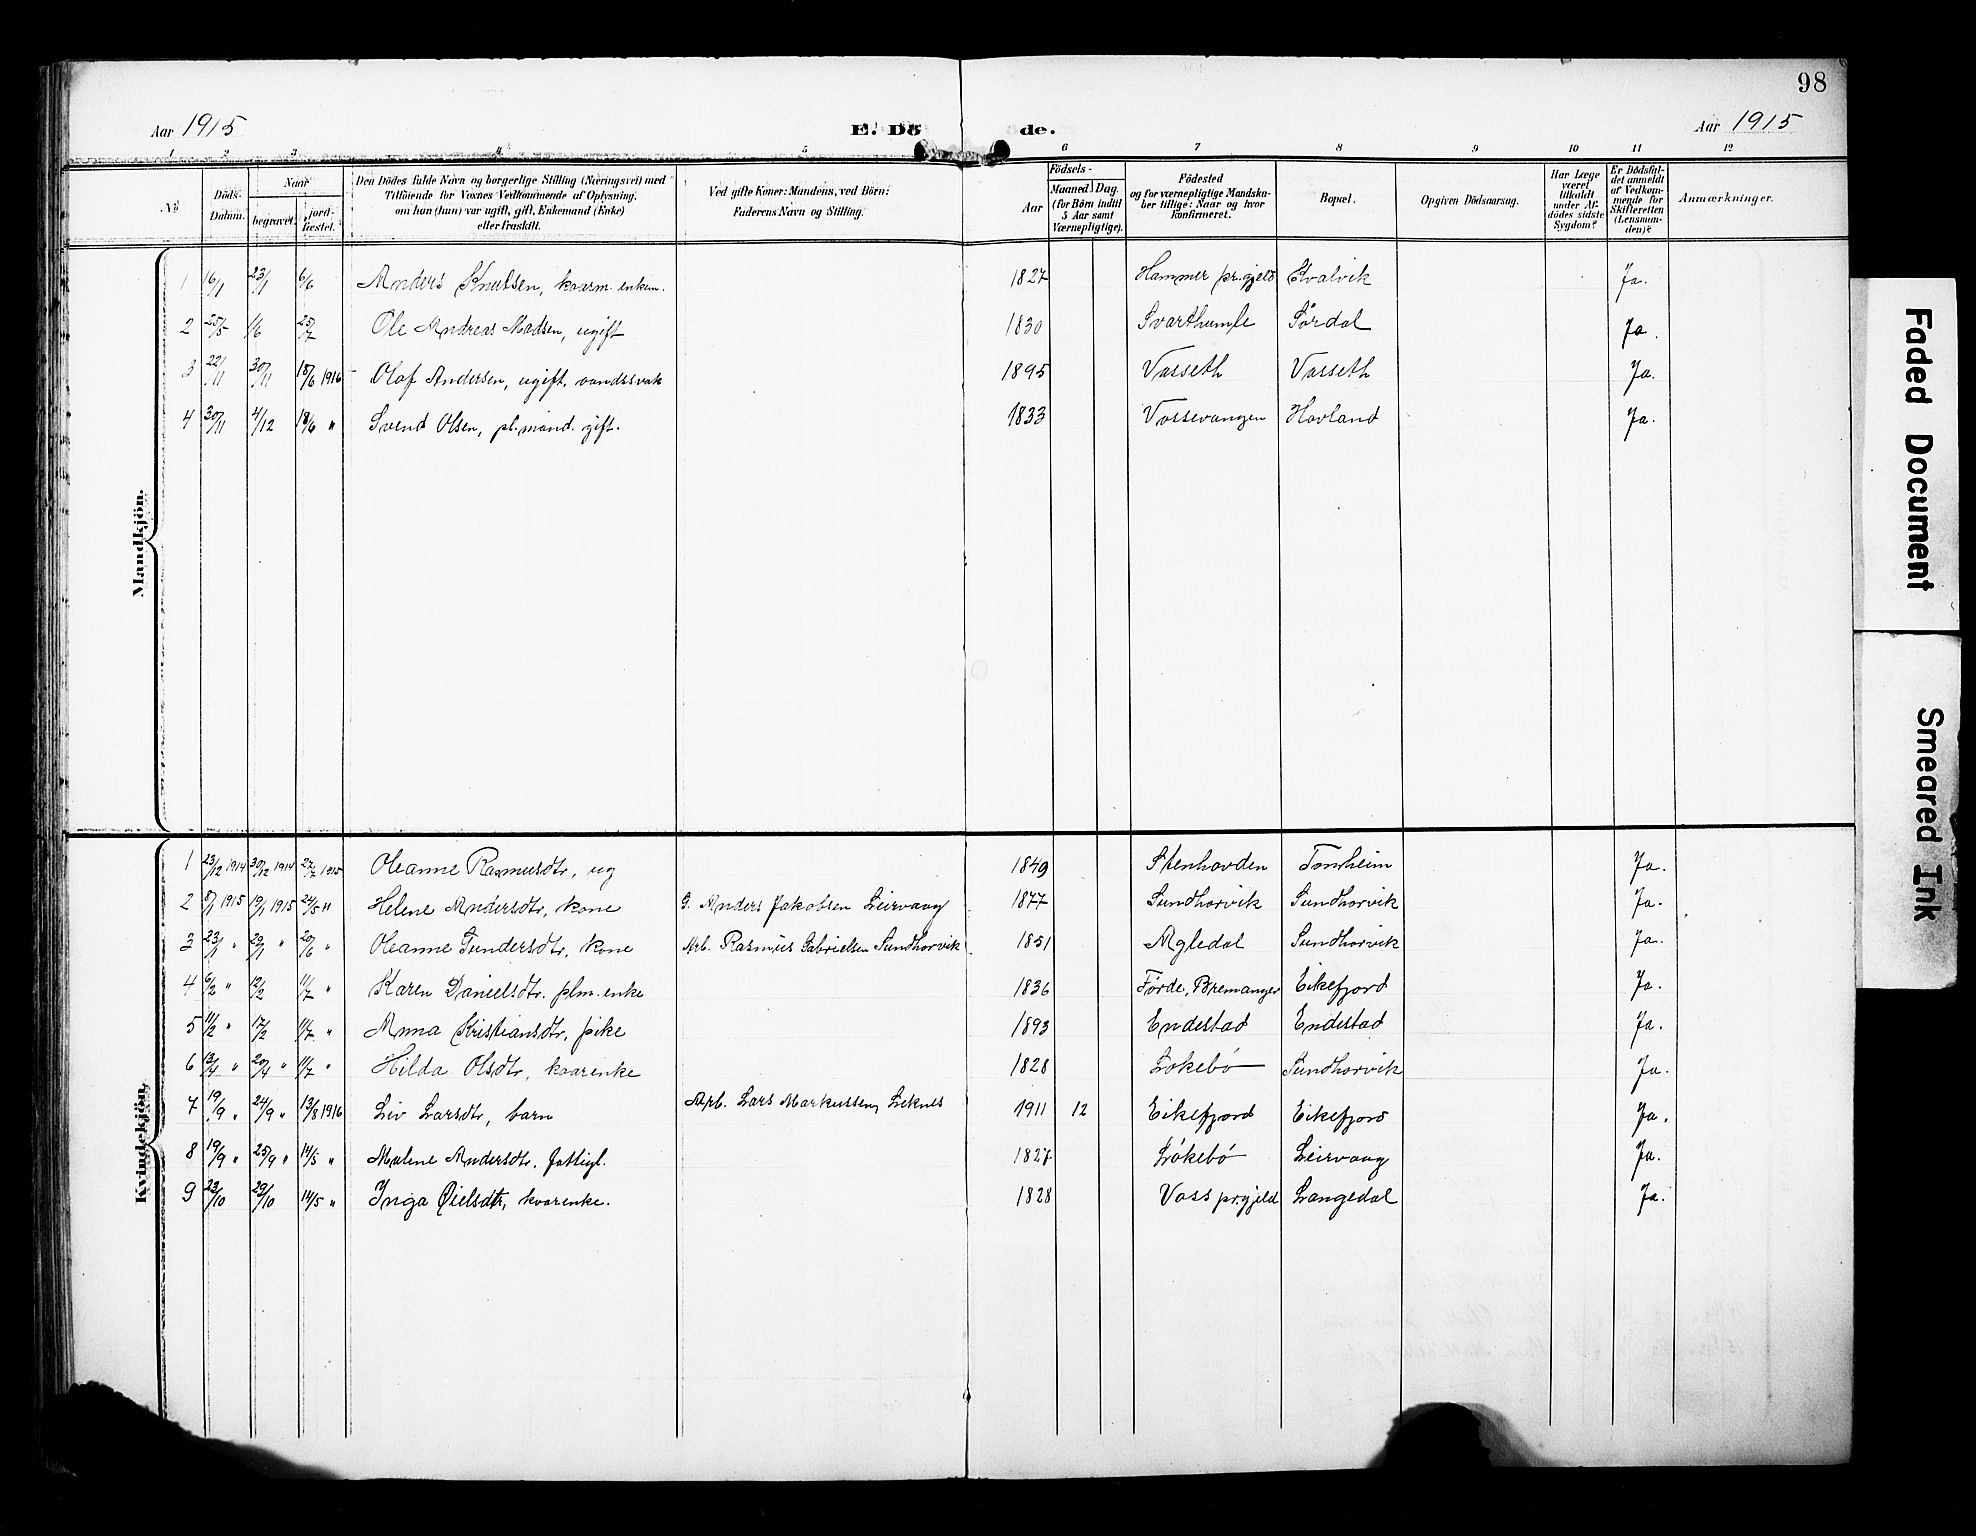 98
Aar 1915 E. Dö de. Aar 1915
1 2 3 4 5 6 7 8 9 10 11 12
No
Döds-Datum.
Naar
begravet.
jord-fæstet.
Den Dödes fulde Navn og borgerlige Stilling (Næringsvei) med
Tilföiende for Voxnes Vedkommende af Oplysning,
om han (hun) var ugift, gift, Enkemand (Enke)
eller fraskilt.
Ved gifte Koner: Mandens, ved Börn:
Faderens Navn og Stilling.
Födsels-
Aar
Maaned Dag.
(for Börn indtil
5 Aar samt
Værnepligtige).
Födested
og for værnepligtige Mandska-
ber tillige: Naar og hvor
konfirmeret.
Bopæl.
Opgiven Dödsaarsag.
Har Læge
været
tilkaldt
under Af-
dödes sidste
Sygdom?
Er Dödsfal-
det anmeldt
af Vedkom-
mende for
Skifteretten
(Lensman-
den)?
Anmærkninger.
Mandkjön.
1 16/1 23/1 6/6 Anders Knutsen, kaarm. enkem. 1827 Hammer pr.gjeld Kvalvik Ja.
2 25/5 1/6 25/7 Ole Andreas Madsen, ugift 1830 Svarthumle Sørdal Ja.
3 22/11 30/11 18/6 1916 Olaf Andersen, ugift, aandssvak 1895 Vasseth Vasseth Ja.
4 30/11 4/12 18/6 " Svend Olsen, pl.mand. gift. 1833 Vossevangen Hovland Ja.
Kvindekjön.
1 23/12 1914 30/12 1914 27/7 1915 Oleanne Rasmusdtr, ug 1849 Stenhovden Tonheim Ja.
2 8/1 1915 19/1 1915 24/5 " Helene Andersdtr, kone G. Anders Jakobsen Leirvaag 1877 Sundhorvik Sundhorvik Ja.
3 23/1 " 29/1 " 20/6 " Oleanne Gundersdtr, kone Arb. Rasmus Gabrielsen Sundhorvik 1851 Agledal Sundhorvik Ja.
4 6/2 " 12/2 11/7 " Karen Danielsdtr. plm. enke 1836 Førde, Bremanger Eikefjord Ja.
5 11/2 " 17/2 11/7 " Anna Kristiansdtr, pike 1893 Endestad Endestad Ja.
6 13/4 " 20/4 " 11/7 " Hilda Olsdtr, kaarenke 1828 Løkebø Sundhorvik Ja.
7 19/9 " 24/9 " 13/8 1916 Liv Larsdtr, barn Arb. Lars Markussen, Leknes 1911 12 Eikefjord Eikefjord Ja.
8 19/9 " 25/9 " 14/5 " Malene Andersdtr. fattigl. 1827 Løkebø Leirvaag Ja.
9 23/10 29/10 14/5 " Inga kvarenke. 1828 Voss pr.gjeld Langedal Ja.
Faded Document
Smeared Ink